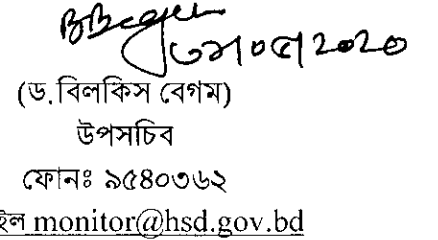 (ড. বিলকিস বেগম)
উপসচিব
ফোনঃ ৯৫৪০৩৬২
monitor@hsd.gov.bd